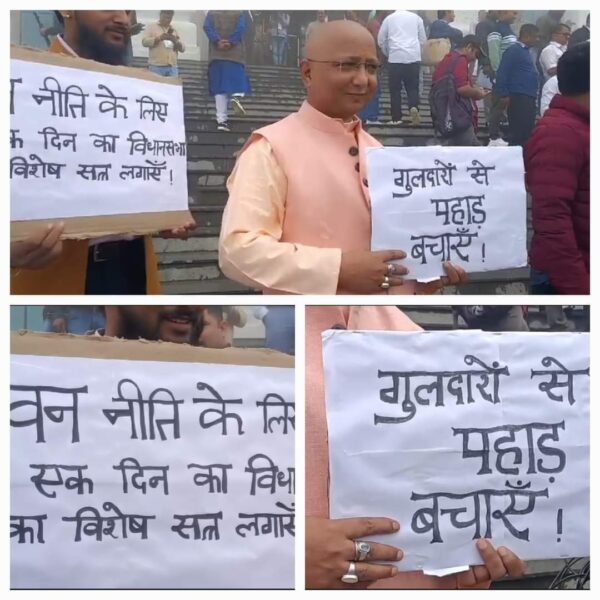 न नीति के लिए
क दिन का विधानसभा
विशेष सत्र लगाएँ !
गुलदारों से
पहाड़
बचाएँ !
वन नीति के लि
एक दिन का विधा
का विशेष सत्र लगाएँ
गुलदारों से
पहाड़
बचाएँ !